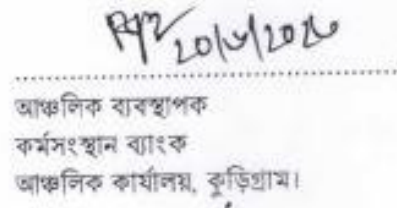 আঞ্চলিক ব্যবস্থাপক
কর্মসংস্থান ব্যাংক
আঞ্চলিক কার্যালয়, কুড়িগ্রাম।